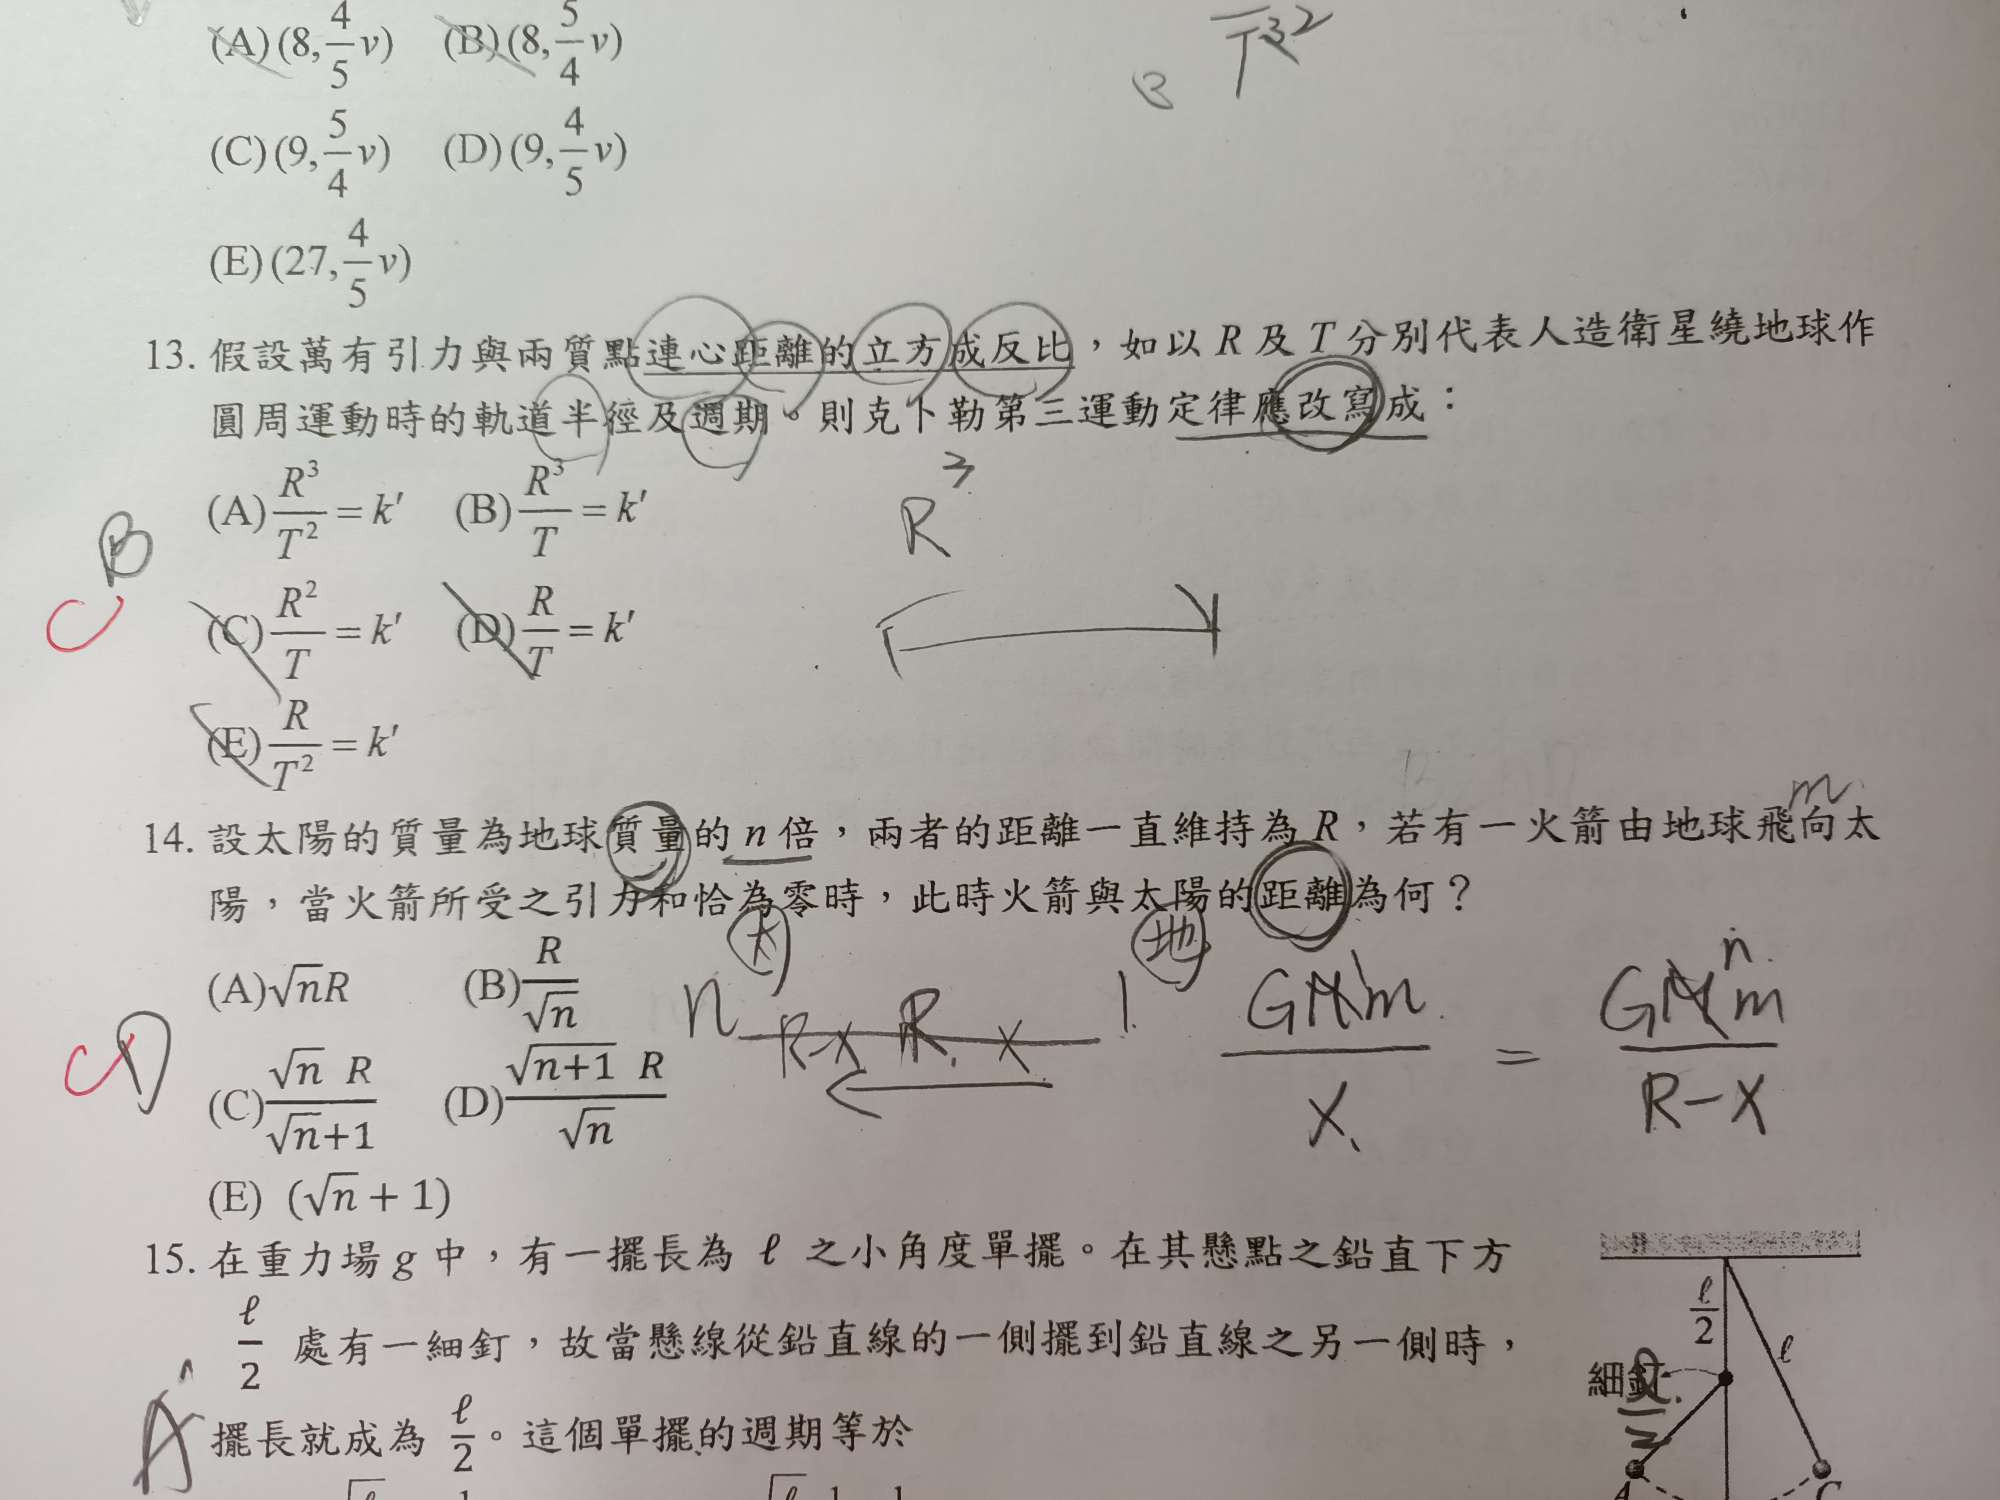 (A)(8, 4/5 v) (B)(8, 5/4 v)
T³²
(C)(9, 5/4 v) (D)(9, 4/5 v)
(E)(27, 4/5 v)
13. 假設萬有引力與兩質點連心距離的立方成反比，如以 R 及 T 分別代表人造衛星繞地球作
圓周運動時的軌道半徑及週期。則克卜勒第三運動定律應改寫成：
(A) R³/T² = k′ (B) R³/T = k′
R³
B
C
(C) R²/T = k′ (D) R/T = k′
(E) R/T² = k′
m
14. 設太陽的質量為地球質量的 n 倍，兩者的距離一直維持為 R，若有一火箭由地球飛向太
陽，當火箭所受之引力和恰為零時，此時火箭與太陽的距離為何？
太 地
(A)√n R (B) R/√n
n R-x R. x 1.
GM1m/x = GMnm/R-x
C D
(C) √n R/√n+1 (D) √n+1 R/√n
(E) (√n + 1)
15. 在重力場 g 中，有一擺長為 ℓ 之小角度單擺。在其懸點之鉛直下方
ℓ/2 處有一細釘，故當懸線從鉛直線的一側擺到鉛直線之另一側時，
A
擺長就成為 ℓ/2。這個單擺的週期等於
ℓ/2
ℓ
細釘
A C